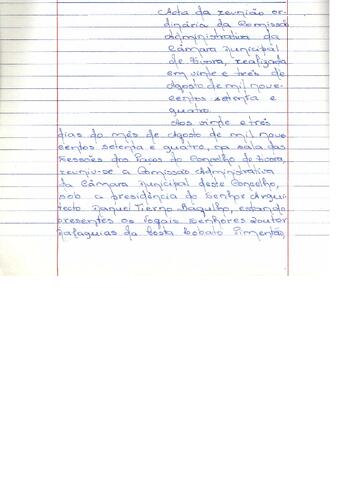 Acta da reunião or-
dinária da Comissão
Administrativa da
Câmara Municipal
de Évora, realizada
em vinte e três de
Agosto de mil nove-
centos setenta e
quatro.
Aos vinte e três
dias do mês de Agosto de mil nove
centos setenta e quatro, na sala das
Sessões dos Paços do Concelho de Évora,
reuniu-se a Comissão Administrativa
da Câmara Municipal deste Concelho,
sob a presidência do Senhor Arqui
tecto Manuel Tierno Bagulho, estando
presentes os vogais Senhores Doutor
Malaquias da Costa Lobato Pimentão,